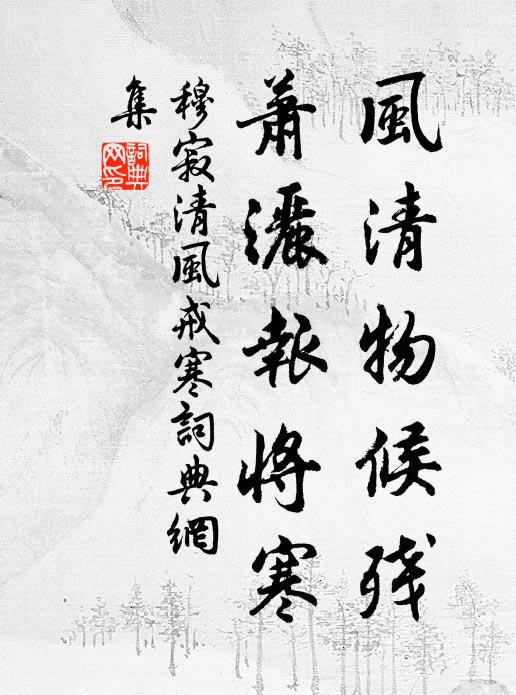 風清物候残
蕭灑報将寒
穆寂清風戒寒詞典網
集
詞典網印